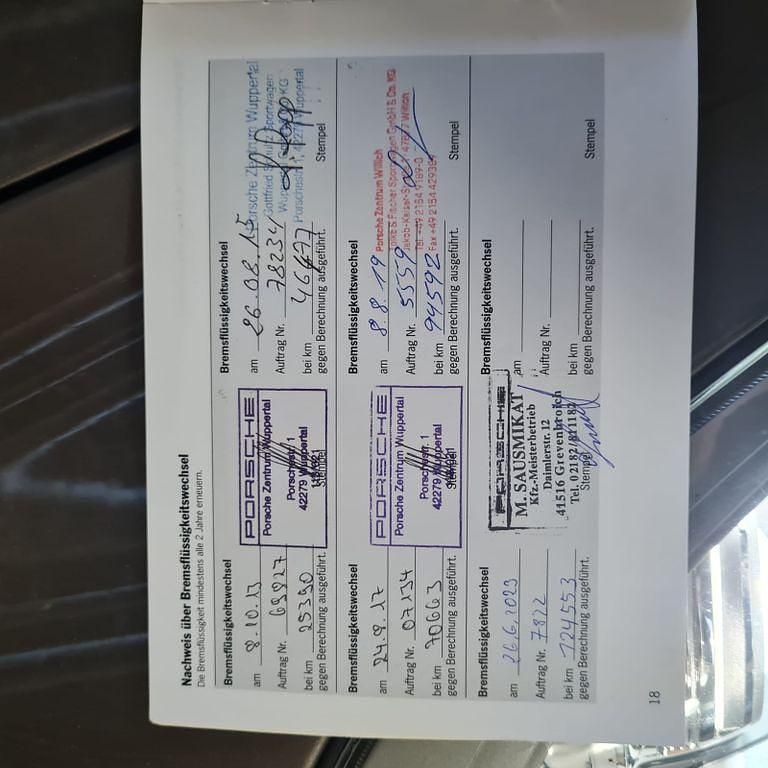 Nachweis über Bremsflüssigkeitswechsel
Die Bremsflüssigkeit mindestens alle 2 Jahre erneuern.
Bremsflüssigkeitswechsel
am 8.10.13
Auftrag Nr. 69927
bei km 25390
gegen Berechnung ausgeführt.
PORSCHE
Porsche Zentrum Wuppertal
Porschestr. 1
42279 Wuppertal
Stempel
Bremsflüssigkeitswechsel
am 26.08.15
Auftrag Nr. 78234
bei km 46477
gegen Berechnung ausgeführt.
Porsche Zentrum Wuppertal
Gottfried Schultz Sportwagen
Wuppertal KG
Porschestr. 1, 42279 Wuppertal
Stempel
Bremsflüssigkeitswechsel
am 24.8.17
Auftrag Nr. 07134
bei km 70663
gegen Berechnung ausgeführt.
PORSCHE
Porsche Zentrum Wuppertal
Porschestr. 1
42279 Wuppertal
Stempel
Bremsflüssigkeitswechsel
am 8.8.19
Auftrag Nr. 5559
bei km 94592
gegen Berechnung ausgeführt.
Porsche Zentrum Willich
Tolke & Fischer Sportwagen GmbH & Co. KG
Jakob-Kaiser-Str. 47877 Willich
Tel. +49 2154 9189-0
Fax +49 2154 42938
Stempel
Bremsflüssigkeitswechsel
am 26.6.2023
Auftrag Nr. 7822
bei km 124553
gegen Berechnung ausgeführt.
PORSCHE
M. SAUSMIKAT
Kfz.-Meisterbetrieb
Daimlerstr. 12
41516 Grevenbroich
Tel. 02182/871182
Stempel
Bremsflüssigkeitswechsel
am
Auftrag Nr.
bei km
gegen Berechnung ausgeführt.
Stempel
18